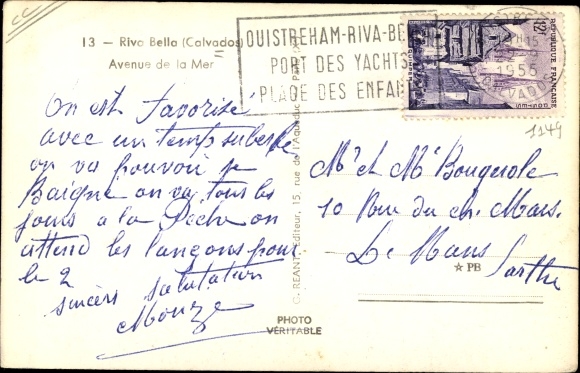 13 - Riva Bella (Calvados)
Avenue de la Mer
OUISTREHAM-RIVA-BE
PORT DES YACHTS
PLAGE DES ENFA
REPUBLIQUE FRANÇAISE
12F
1955
CALVADOS
1149
On est favorisé
avec un temps superbe
on va pouvoir se
Baigné on va tous les
jours a la Peche on
attend les lançons pour
le 2
sincères salutation
Mr et Me Bougerole
10 Rue du ch. Mars.
Le Mans
Sarthe
PB
RÉANT, Éditeur, 15, rue de l'Aqueduc
PHOTO
VÉRITABLE